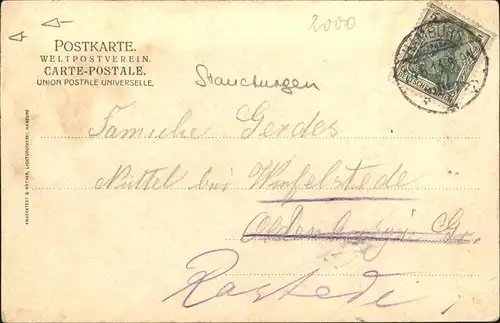 2000
POSTKARTE.
WELTPOSTVEREIN.
CARTE-POSTALE.
UNION POSTALE UNIVERSELLE.
Stauchungen
HAMBURG
Familie Gerdes
Nüttel bei Wiefelstede
Oldenburg i. Gr.
Rastede
KNACKSTEDT & NÄTHER, LICHTDRUCKEREI, HAMBURG